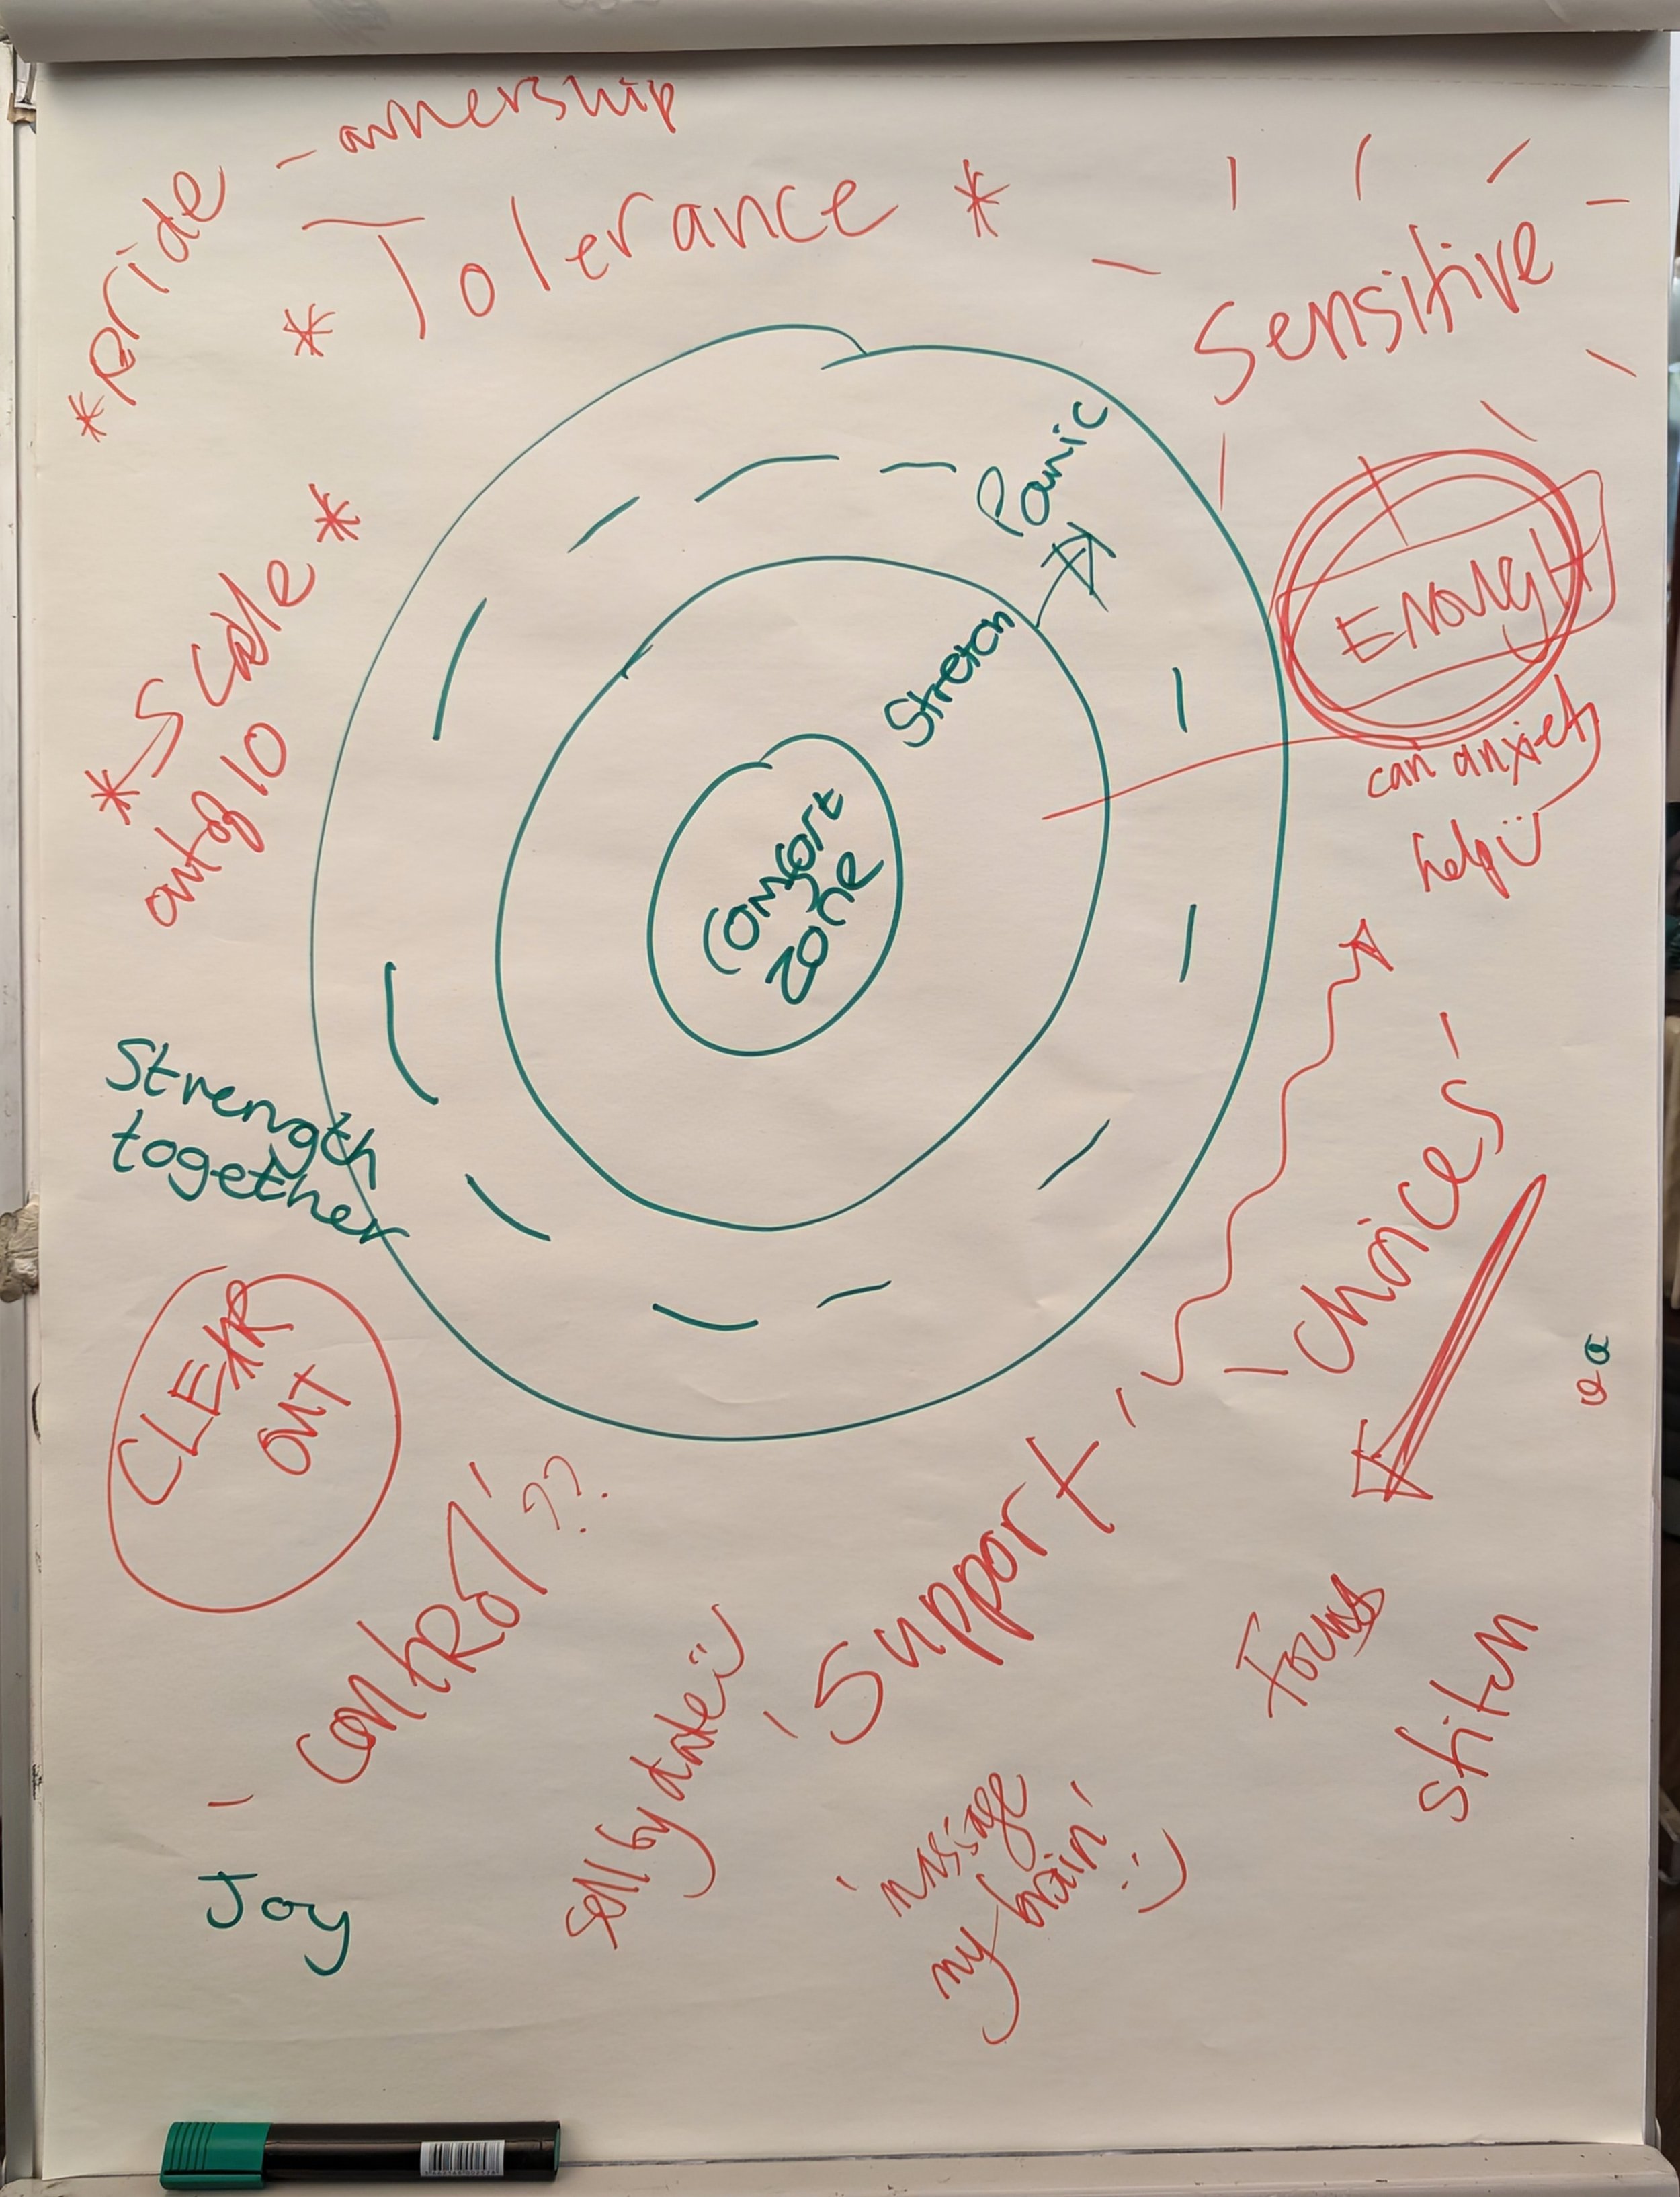 *Pride - ownership
* Tolerance *
Sensitive
*Scale *
out of 10
Panic
Stretch
Comfort
zone
ENOUGH
can anxiety
help
Strength
together
CLEAR
OUT
choices
control ??
Support
Focus
stitch
sell by date
'massage
my brain'
Joy